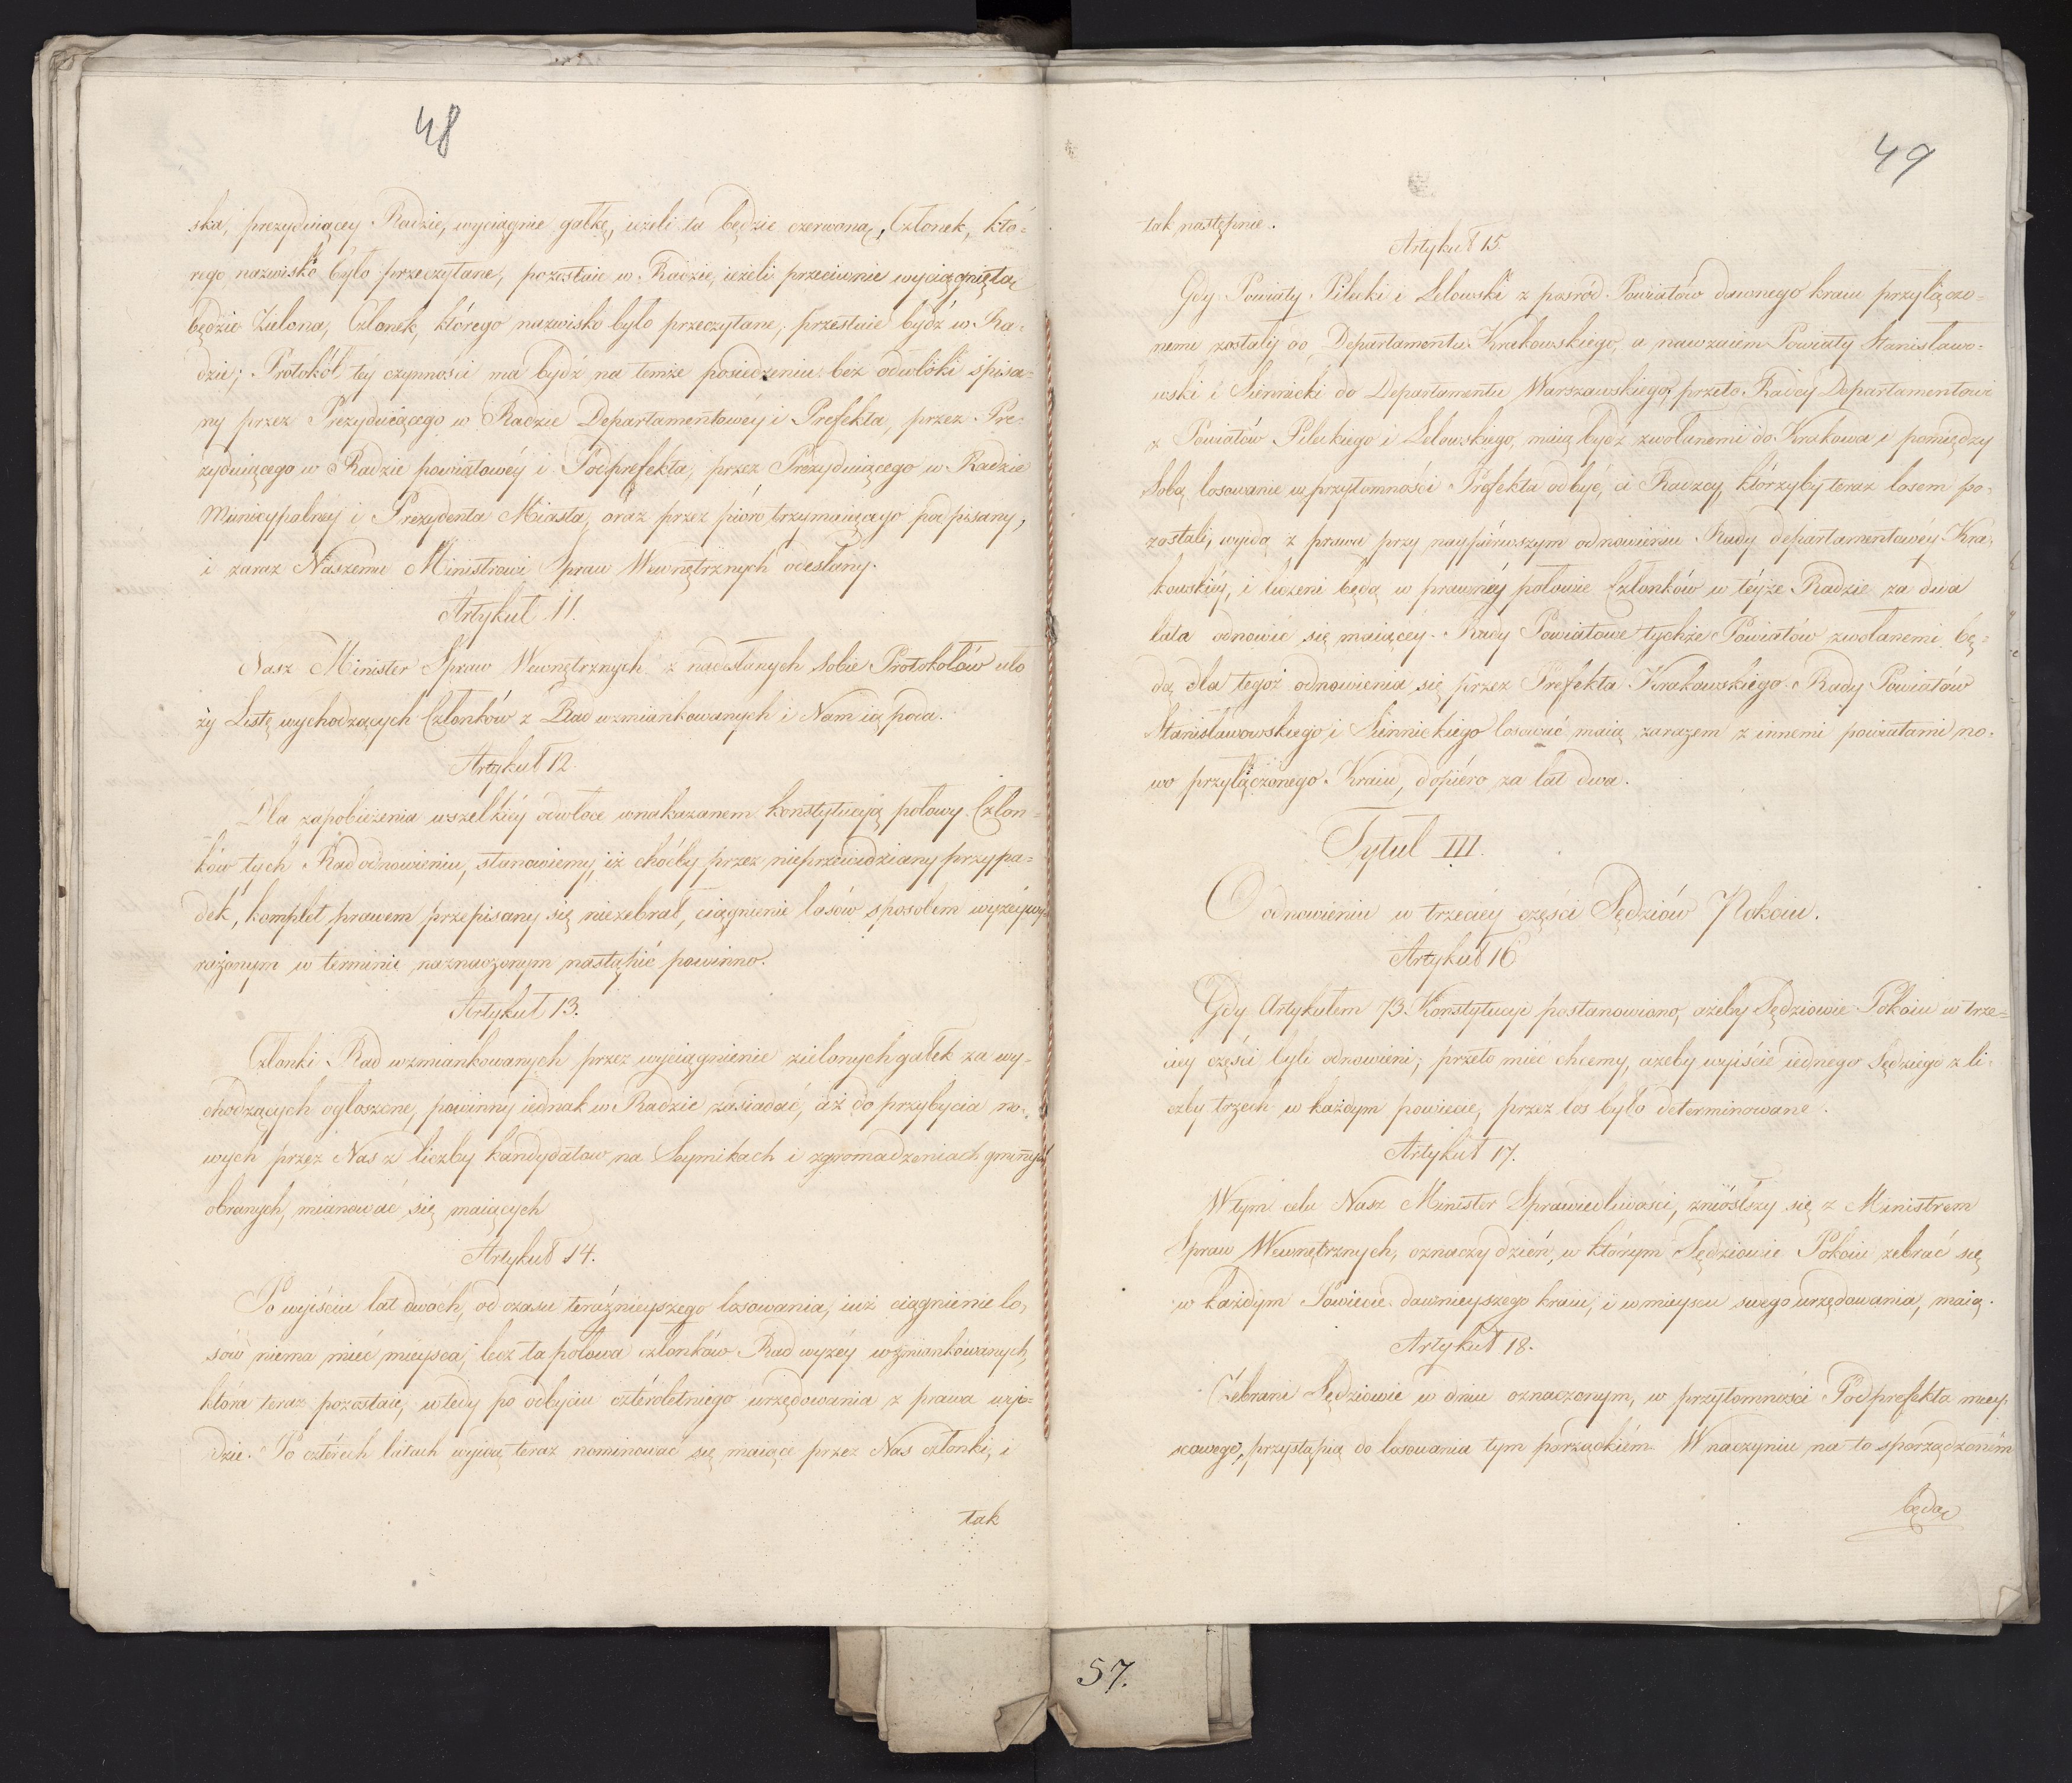 48
ska, prezyduiącey Radzie, wyciągnie gałkę, ieżeli ta będzie czerwoną, Członek, któ-
rego nazwisko było przeczytane, pozostaie w Radzie, ieżeli przeciwnie wyciągniętą
będzie Zielona, Członek, którego nazwisko było przeczytane, przestaie bydź w Ra-
dzie; Protokół téy czynności ma bydź na temże posiedzeniu bez odwłoki spisa-
ny przez Prezyduiącego w Radzie Departamentowéy i Prefekta, przez Pre-
zyduiącego w Radzie powiatowéy i Podprefekta, przez Prezyduiącego w Radzie
Municypalnéy i Prezydenta Miasta, oraz przez pióro trzymaiącego podpisany,
i zaraz Naszemu Ministrowi Spraw Wewnętrznych odesłany.
Artykuł 11.
Nasz Minister Spraw Wewnętrznych z nadesłanych sobie Protokołów uło
ży Listę wychodzących Członków z Rad wzmiankowanych i Nam ią poda.
Artykuł 12.
Dla zapobieżenia wszelkiéy odwłoce w nakazanem konstytucyą połowy Człon-
ków tych Rad odnowieniu, stanowiemy, iż choćby przez nieprzewidziany przypa-
dek, komplet prawem przepisany się niezebrał, ciągnienie losów sposobem wyżéy wy-
rażonym w terminie naznaczonym nastąpić powinno.
Artykuł 13.
Członki Rad wzmiankowanych przez wyciągnienie zielonych gałek za wy-
chodzących ogłoszone, powinny iednak w Radzie zasiadać, aż do przybycia no-
wych przez Nas z liczby kandydatow na Seymikach i zgromadzeniach gminnych
obranych, mianować się maiących
Artykuł 14.
Po wyjściu lat dwóch, od czasu teraźnieyszego losowania, iuż ciągnienie lo-
sów niema mieć mieysca; lecz ta połowa członków Rad wyżéy wzmiankowanych,
która teraz pozostaie, wtedy po odbyciu czteroletniego urzędowania z prawa wyj-
dzie. Po czterech latach wyjdą teraz nominować się maiące przez Nas członki, i
tak
49
tak następnie.
Artykuł 15.
Gdy Powiaty Pilecki i Lelowski z pośród Powiatów dawnego kraiu przyłączo-
nemi zostały do Departamentu Krakowskiego, a nawzaiem Powiaty Stanisławo-
wski i Siennicki do Departamentu Warszawskiego, przeto Radcy Departamentowi
z Powiatów Pileckiego i Lelowskiego, maią bydź zwołanemi do Krakowa i pomiędzy
Sobą losowanie w przytomności Prefekta odbyć, ci Radzcy, którzyby teraz losem po-
zostali, wyjdą z prawa przy naypierwszym odnowieniu Rady departamentowéy Kra-
kowskiéy, i liczeni będą w prawnéy połowie Członków w téyże Radzie za dwa
lata odnowić się maiącéy. Rady Powiatowe tychże Powiatów zwołanemi bę-
dą dla tegoż odnowienia się przez Prefekta Krakowskiego. Rady Powiatów
Stanisławowskiego i Siennickiego losować maią zarazem z innemi powiatami no-
wo przyłączonego Kraiu, dopiéro za lat dwa.
Tytuł III.
O odnowieniu w trzeciéy części Sędziów Pokoiu.
Artykuł 16
Gdy Artykułem 73. Konstytucyi postanowiono, ażeby Sędziowie Pokoiu w trze-
ciéy części byli odnowieni; przeto mieć chcemy, ażeby wyjście iednego Sędziego z li-
czby trzech w każdym powiecie, przez los było determinowane.
Artykuł 17.
W tym celu Nasz Minister Sprawiedliwości, zniósłszy się z Ministrem
Spraw Wewnętrznych, oznaczy dzień, w którym Sędziowie Pokoiu zebrać się
w każdym Powiecie dawnieyszego kraiu, i w mieyscu swego urzędowania, maią.
Artykuł 18.
Zebrani Sędziowie w dniu oznaczonym, w przytomności Podprefekta miey-
scowego, przystąpią do losowania tym porządkiém. W naczyniu na to sporządzoném
będą
57.